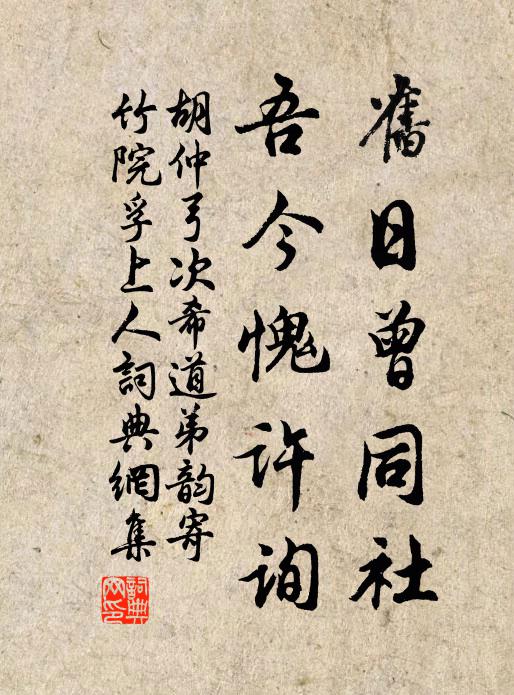 舊日曾同社
吾今愧許詢
胡仲弓次希道弟韵寄
竹院孚上人詞典網集
詞典
网印